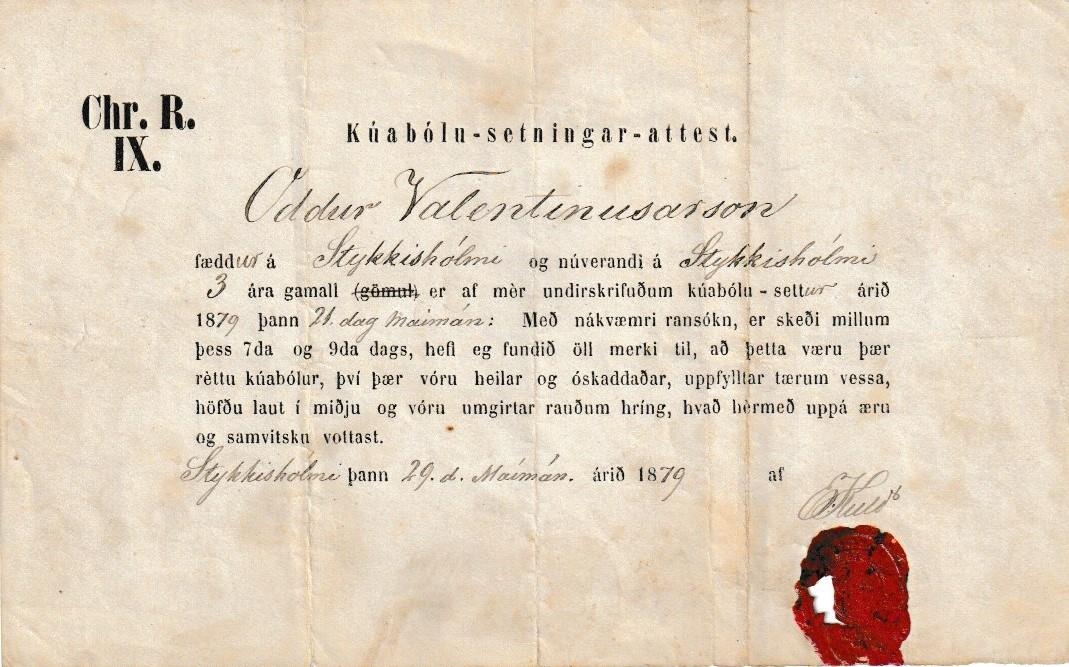 Chr. R.
IX.
Kúabólu-setningar-attest.
Oddur Valentinusarson
fæddur á Stykkishólmi og núverandi á Stykkishólmi
3 ára gamall (gömul) er af mèr undirskrifuðum kúabólu-settur árið
1879 þann 21. dag Maimán: Með nákvæmri ransókn, er skeði millum
þess 7da og 9da dags, hefi eg fundið öll merki til, að þetta væru þær
rèttu kúabólur, því þær vóru heilar og óskaddaðar, uppfylltar tærum vessa,
höfðu laut í miðju og vóru umgirtar rauðum hríng, hvað hèrmeð uppá æru
og samvitsku vottast.
Stykkishólmi þann 29. d. Maímán. árið 1879 af